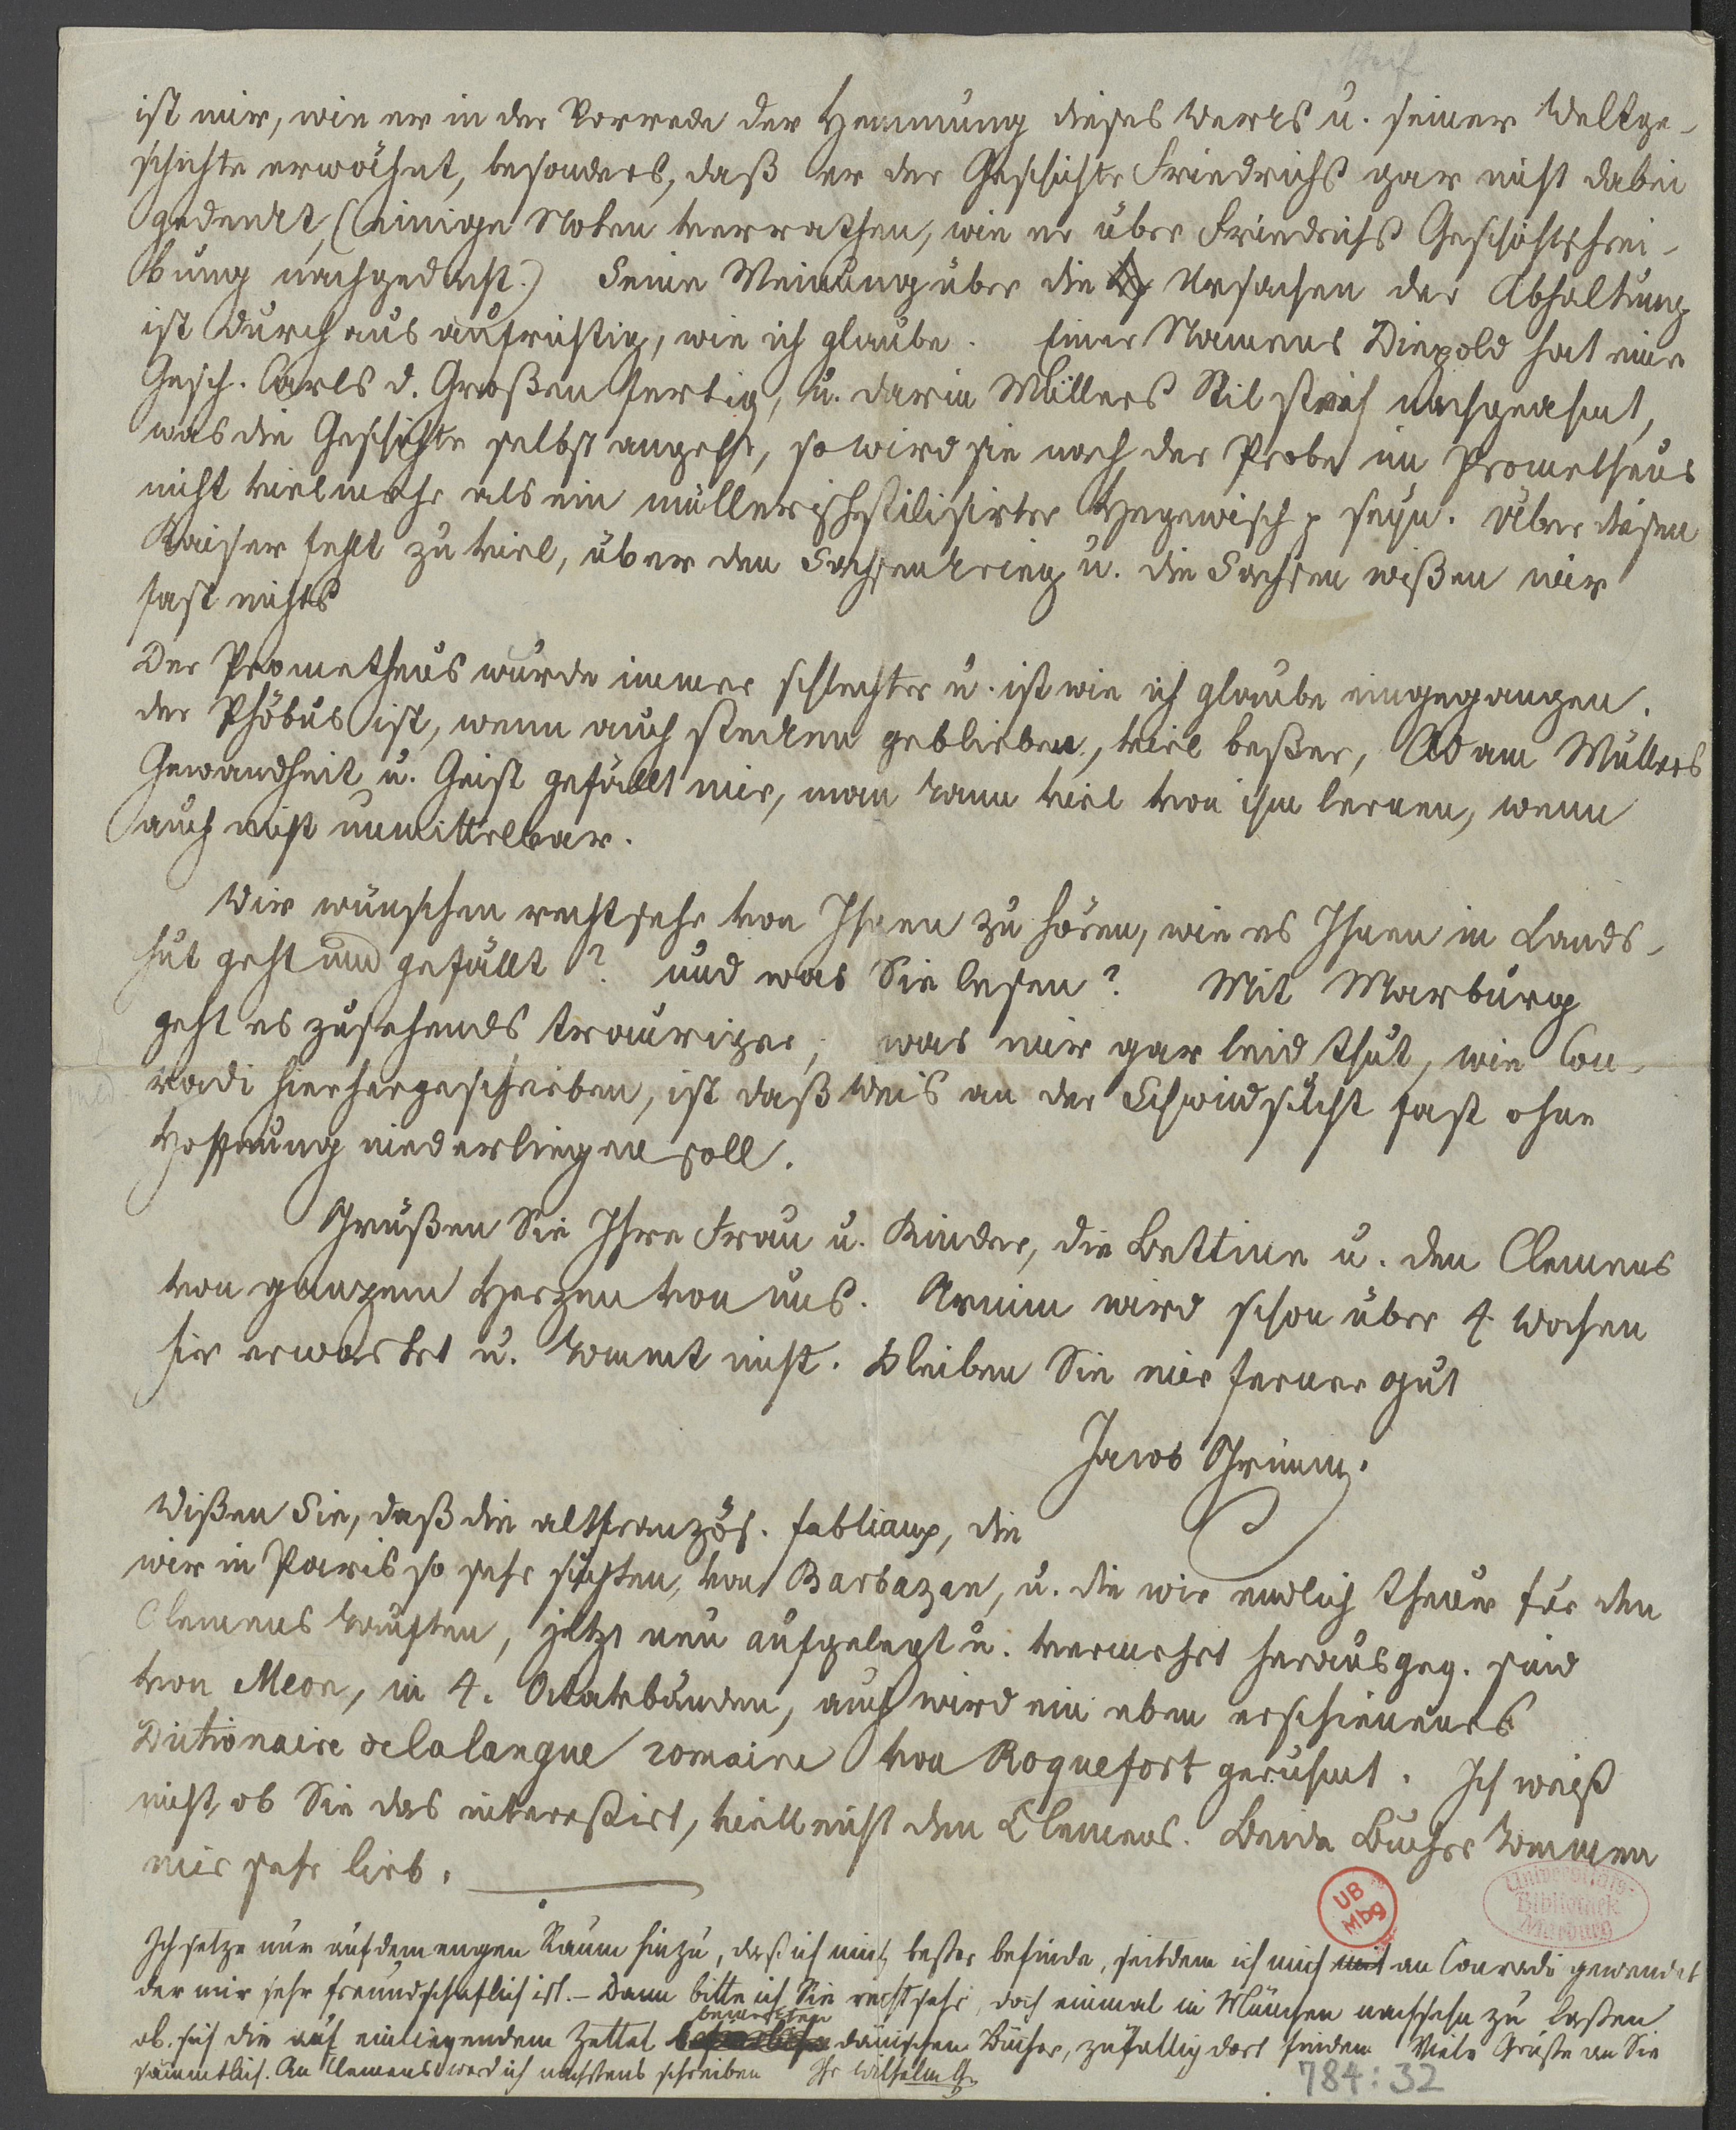 ist mir, wie er in der Vorrede der Hemmung dieses Werks u. seiner Weltge-
schichte erwähnt, besonders, daß er der Geschichte Friedrichs gar nicht dabei
gedenkt, (einige Noten verrathen, wie er über Friedrichs Geschichtschrei-
bung nachgedacht.) Seine Meinung über die Ursachen der Abhaltung
ist durchaus aufrichtig, wie ich glaube. Einer Namens Dippold hat eine
Gesch. Carls d. Großen fertig, u. darin Müllers Stil steif nachgeahmt,
was die Geschichte selbst angeht, so wird sie nach der Probe im Prometheus
nicht viel mehr als ein müllerisch stilisirter Hegewisch p seyn. Über diesen
Kaiser fehlt zu viel, über den Sachsenkrieg u. die Sachsen wißen wir
fast nichts
Der Prometheus wurde immer schlechter u. ist wie ich glaube eingegangen.
der Phöbus ist, wenn auch stecken geblieben, viel beßer, Adam Müllers
Gewandheit u. Geist gefällt mir, man kann viel von ihm lernen, wenn
auch nicht unmittelbar.
Wir wünschen recht sehr von Ihnen zu hören, wie es Ihnen in Lands-
hut geht und gefällt? und was Sie lesen? Mit Marburg
geht es zusehends trauriger, was mir gar leid thut, wie Con-
radi hierhergeschrieben, ist daß Weis an der Schwindsucht fast ohne
Hoffnung niederliegen soll.
Grüßen Sie Ihre Frau u. Kinder, die Bettine u. den Clemens
von ganzem Herzen von uns. Arnim wird schon über 4 Wochen
hier erwartet u. kommt nicht. Bleiben Sie mir ferner gut
Jacob Grimm.
Wißen Sie, daß die altfranzös. fabliaux, die
wir in Paris so sehr suchten, von Barbazan, u. die wir endlich theuer für den
Clemens kauften, jetzt neu aufgelegt u. vermehrt herausgeg. sind
von Meon, in 4. Octavbänden, auch wird ein eben erschienenes
Dictionaire de la langue romaine von Roquefort gerühmt. Ich weiß
nicht, ob Sie das interessirt, vielleicht den Clemens. Beide Bücher kommen
mir sehr lieb.
Ich setze nur auf dem engen Raum hinzu, daß ich mich beßer befinde, seitdem ich mich mit an Conradi gewendet
der mir sehr freundschaftlich ist. – Dann bitte ich Sie recht sehr, doch einmal in München nachsehn zu laßen
bemerkten
ob sich die auf einliegendem Zettel dänischen Bücher, zufällig dort finden Viele Grüße an Sie
sämmtlich. An Clemens werd ich nächstens schreiben Ihr Wilhelm Gr.
UB
Mbg
Universitäts-
Bibliothek
Marburg
784:32